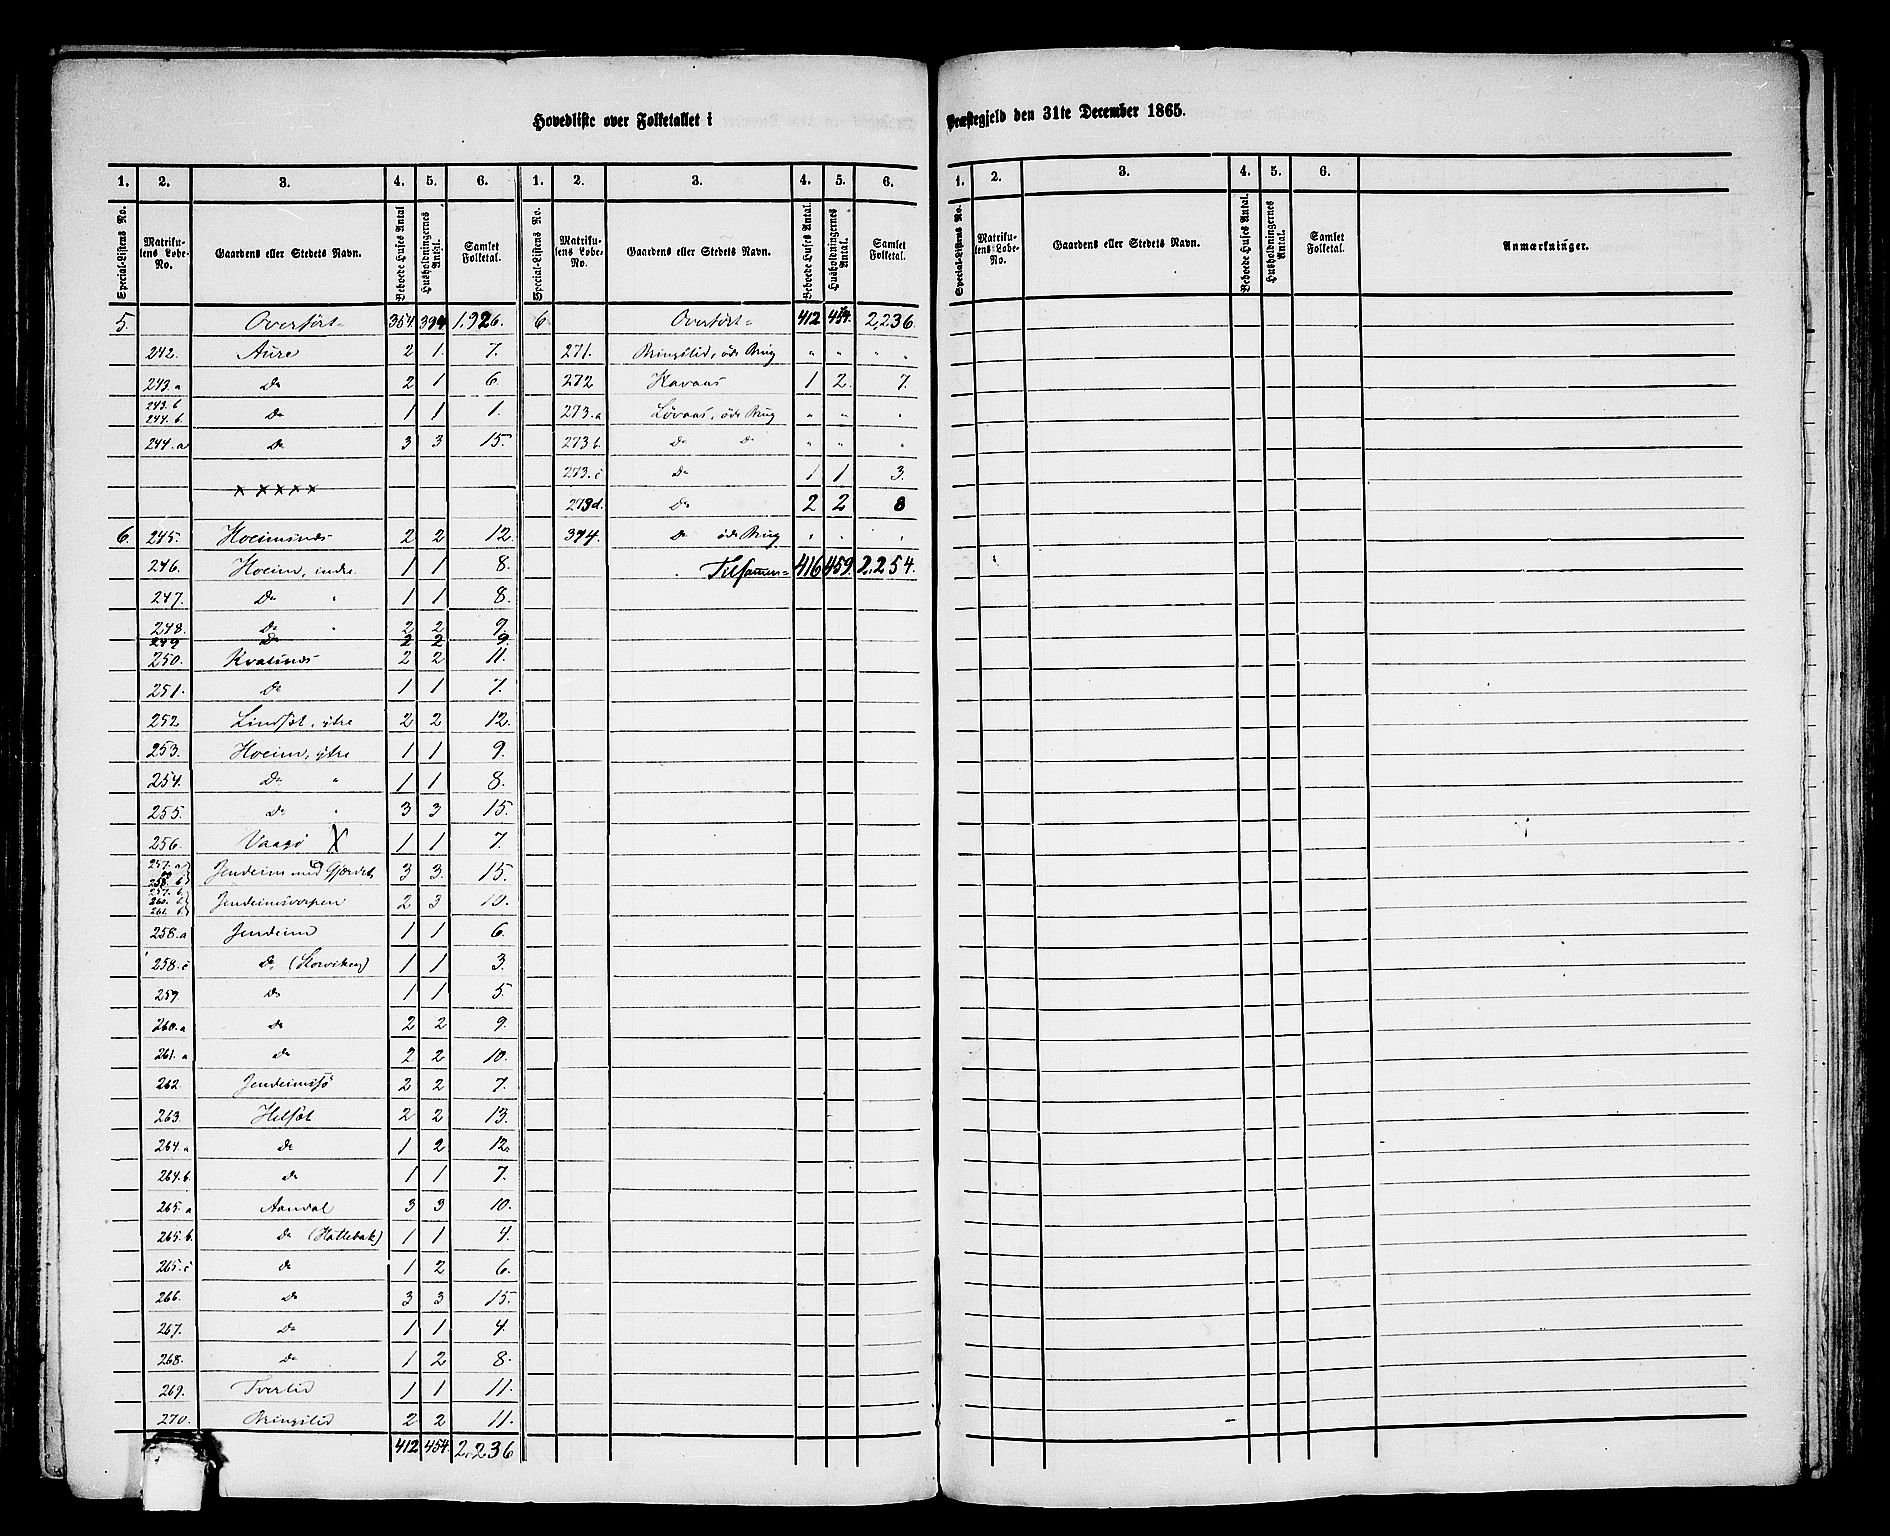 Hovedliste over Folketallet i Præstegjeld den 31te December 1865.
1. 2. 3. 4. 5. 6. 1. 2. 3. 4. 5. 6.
Special-Listens No. Matrikulens Løbe-No. Gaardens eller Stedets Navn. Beboede Huses Antal Husholdningernes Antal. Samlet Folketal. Special-Listens No. Matrikulens Løbe-No. Gaardens eller Stedets Navn. Beboede Huses Antal. Husholdningernes Antal. Samlet Folketal.
5. Overført= 354 394 1.926.
242. Aure 2 1. 7.
243.a Do 2 1 6.
243.b 244.b. Do 1 1 1.
244.a Do 3 3 15.
x xxxx
6. 245. Hoeimsnæs 2 2 12.
246. Hoeim, indre 1 1 8.
247. Do " 1 1 8.
248. Do " 2 2 7.
249 Do 2 2 9.
250. Kvalsnæs 2 2 11.
251. Do 1 1 7.
252 Lindsæt, ytre 2 2 12.
253. Hoeim, ytre 1 1 9.
254. Do " 1 1 8.
255. Do " 3 3 15.
256. Vaagø X 1 1 7.
257.a 258.b Jendeim med Gjærdet 3 3. 15.
257.b 260.b 261.b Jendeimsvorpen 2 3 10.
258.a Jendeim 1 1 6.
258.c Do (Storviken) 1 1 3.
259. Do 1 1 5.
260.a Do 2 2 9.
261.a Do 2 2 10.
262. Jendeimsø 2 2 7.
263. Hilsæt 2 2 13.
264.a Do 1 2 12.
264.b. Do 1 1 7.
265.a Aandal 3 3 10.
265.b. Do (Hattebak) 1 1 4.
265.c Do 1 2 6.
266. Do 3 3 15.
267. Do 1 1 4.
268. Do 1 2 8.
269. Tverlid 1 1 11.
270. Bringslid 2 2 11.
412 454. 2.236
6 Overført= 412 454. 2,236.
271. Bringslid, öde Brug " " " "
272 Havaas 1 2. 7.
273.a Løvaas, öde Brug " " "
273 b. Do Do " " "
273.c Do 1 1 3.
273d. Do 2 2 8
394. Do öde Brug " " "
Tilsamen= 416 459. 2.254.
1. 2. 3. 4. 5. 6.
Special-Listens No. Matrikulens Løbe-No. Gaardens eller Stedets Navn. Beboede Huses Antal. Husholdningernes Antal. Samlet Folketal. Anmærkninger.